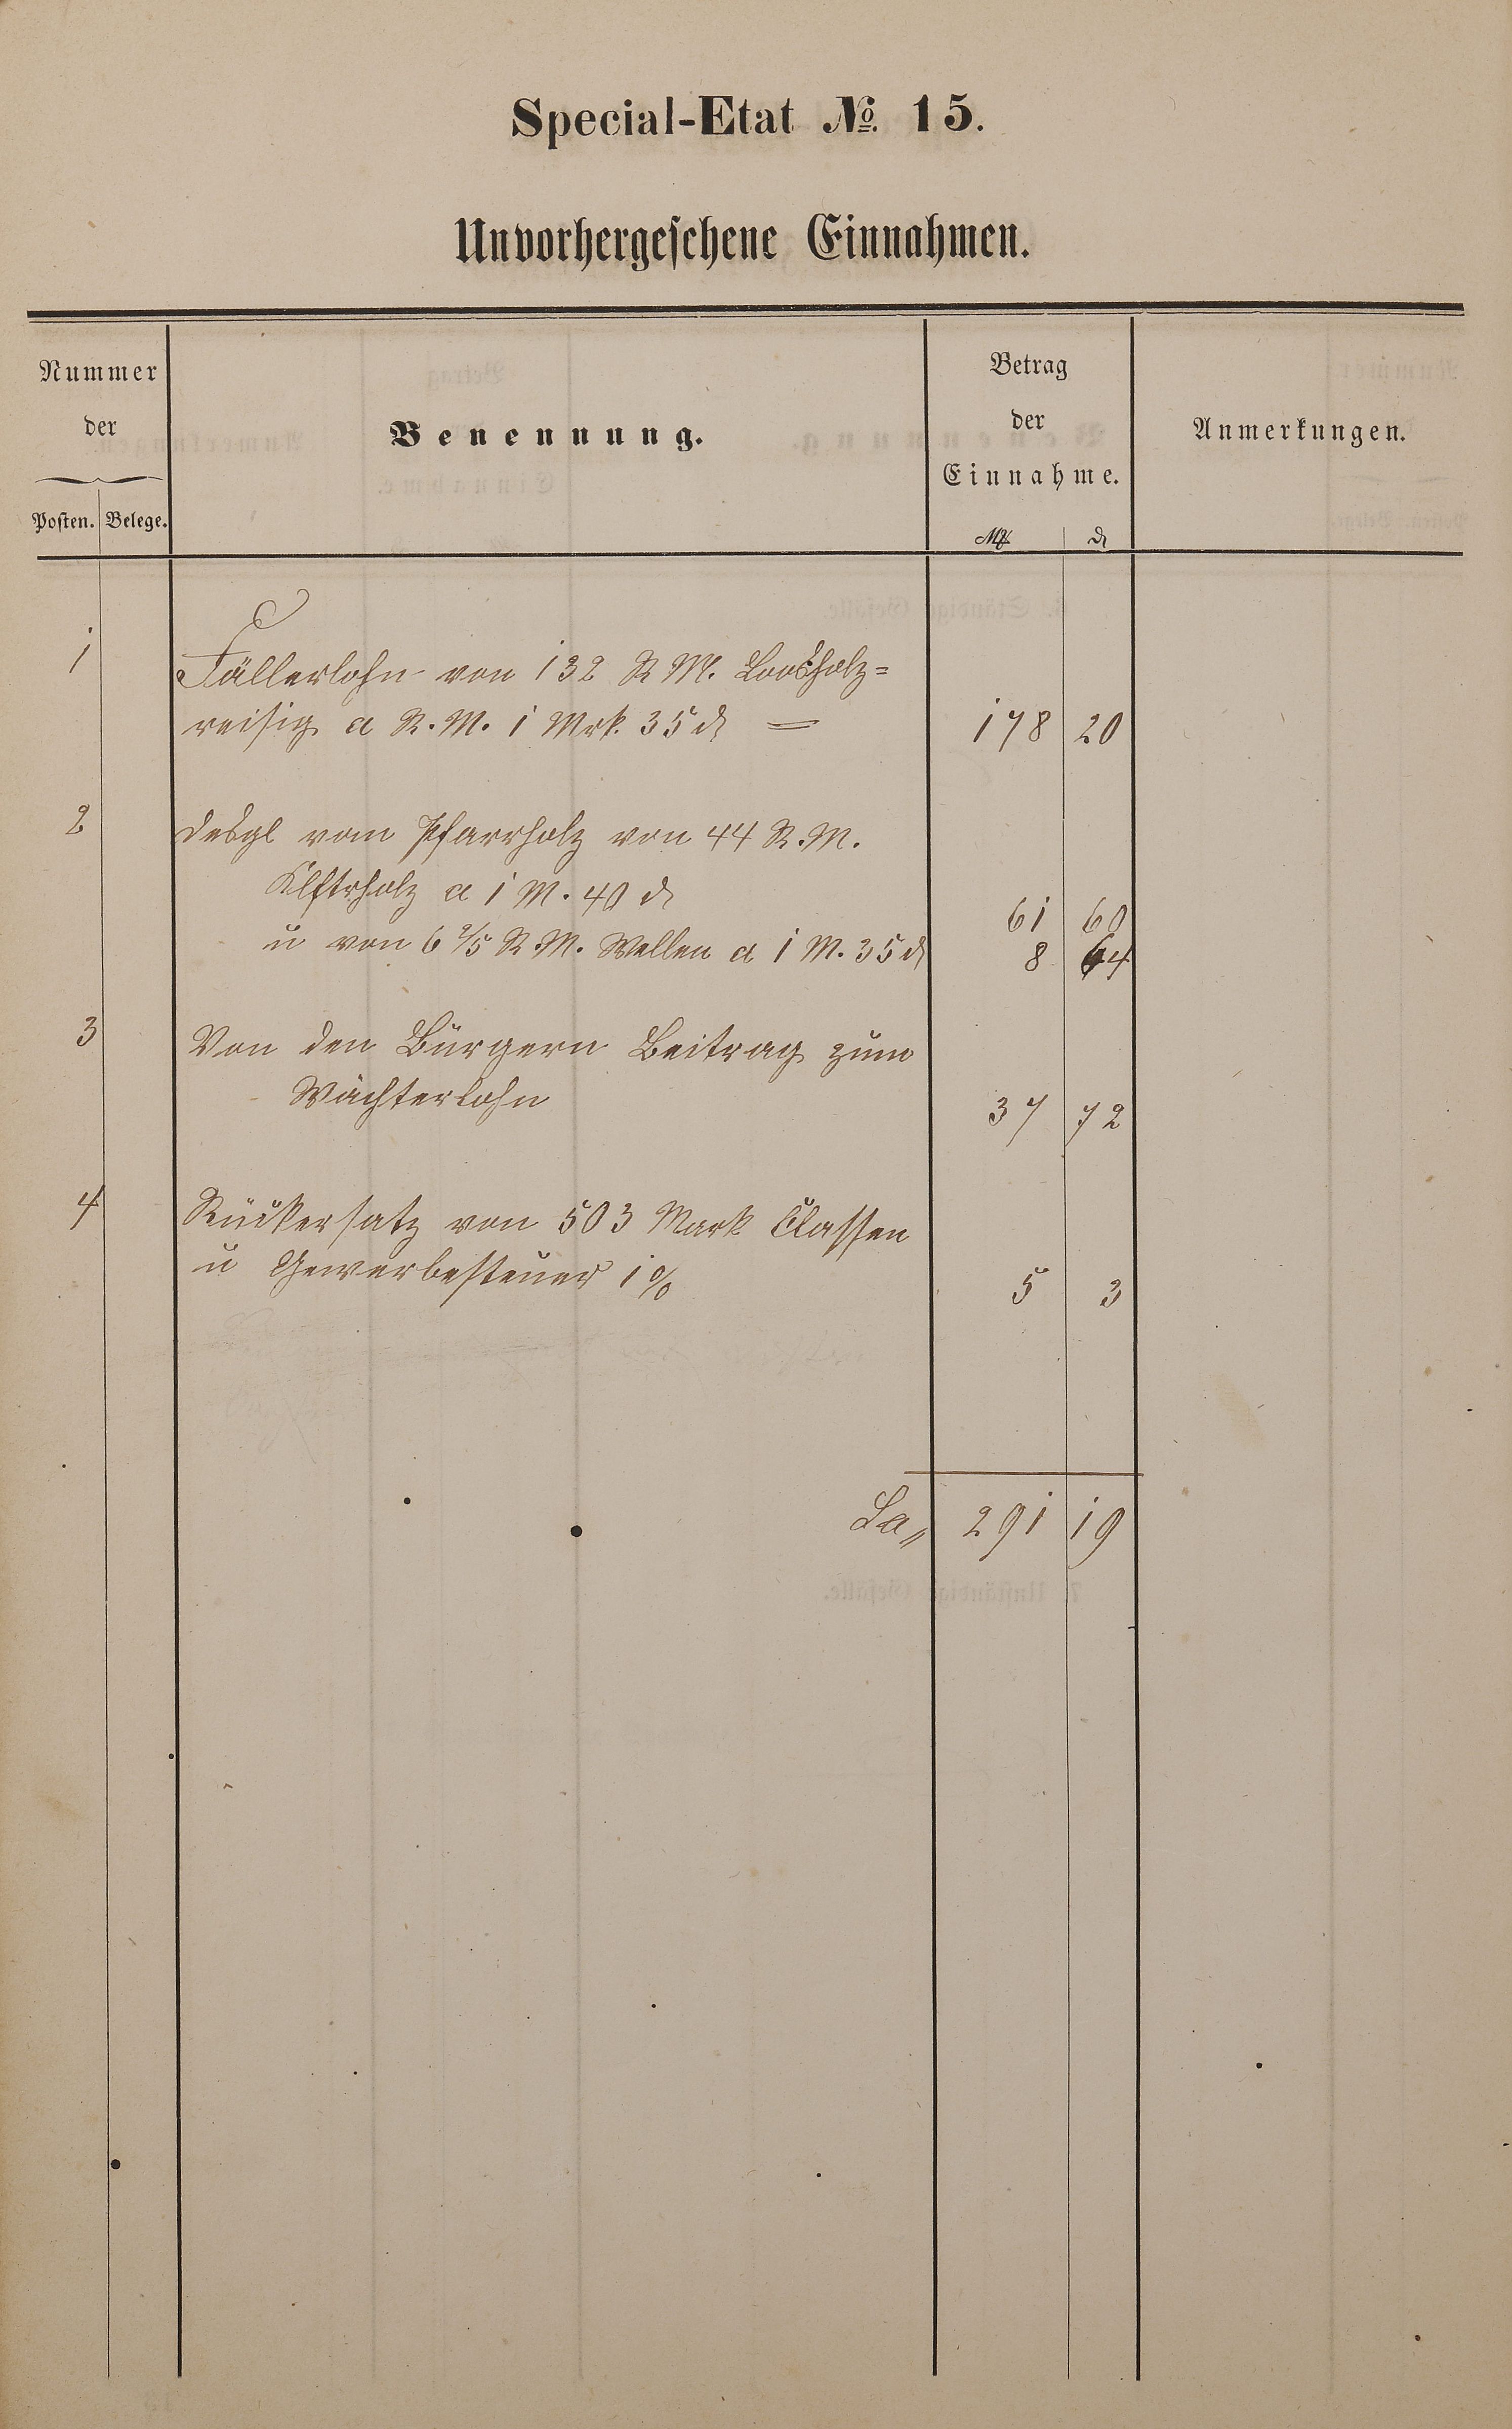 Special-Etat № 15.
Unvorhergesehene Einnahmen.
Nummer
der
Posten. Belege.
Benennung.
Betrag
der
Einnahme.
Mk ₰
Anmerkungen.
1 Fällerlohn von 132 R M. Loosholz=
reisig a R.M. 1 Mrk. 35 ₰ = 178 20
2 desgl vom Pfarrholz von 44 R.M.
Klftrholz a 1 M. 40 ₰ 61 60
u von 6 2/5 R M. Wellen a 1 M. 35 ₰ 8 64
3 Von den Bürgern Beitrag zum
Wächterlohn 37 72
4 Rückersatz von 503 Mark Classen
u Gewerbesteuer 1 % 5 3
Sa,, 291 19